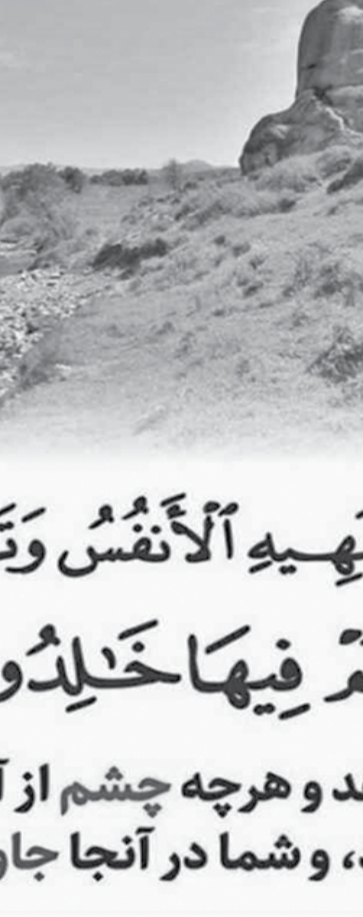 ـهِـيهِ ٱلْأَنفُسُ وَتَـ
ـمْ فِيهَا خَـٰلِدُو
ـد و هرچه چشم از آ
د، و شما در آنجا جاو